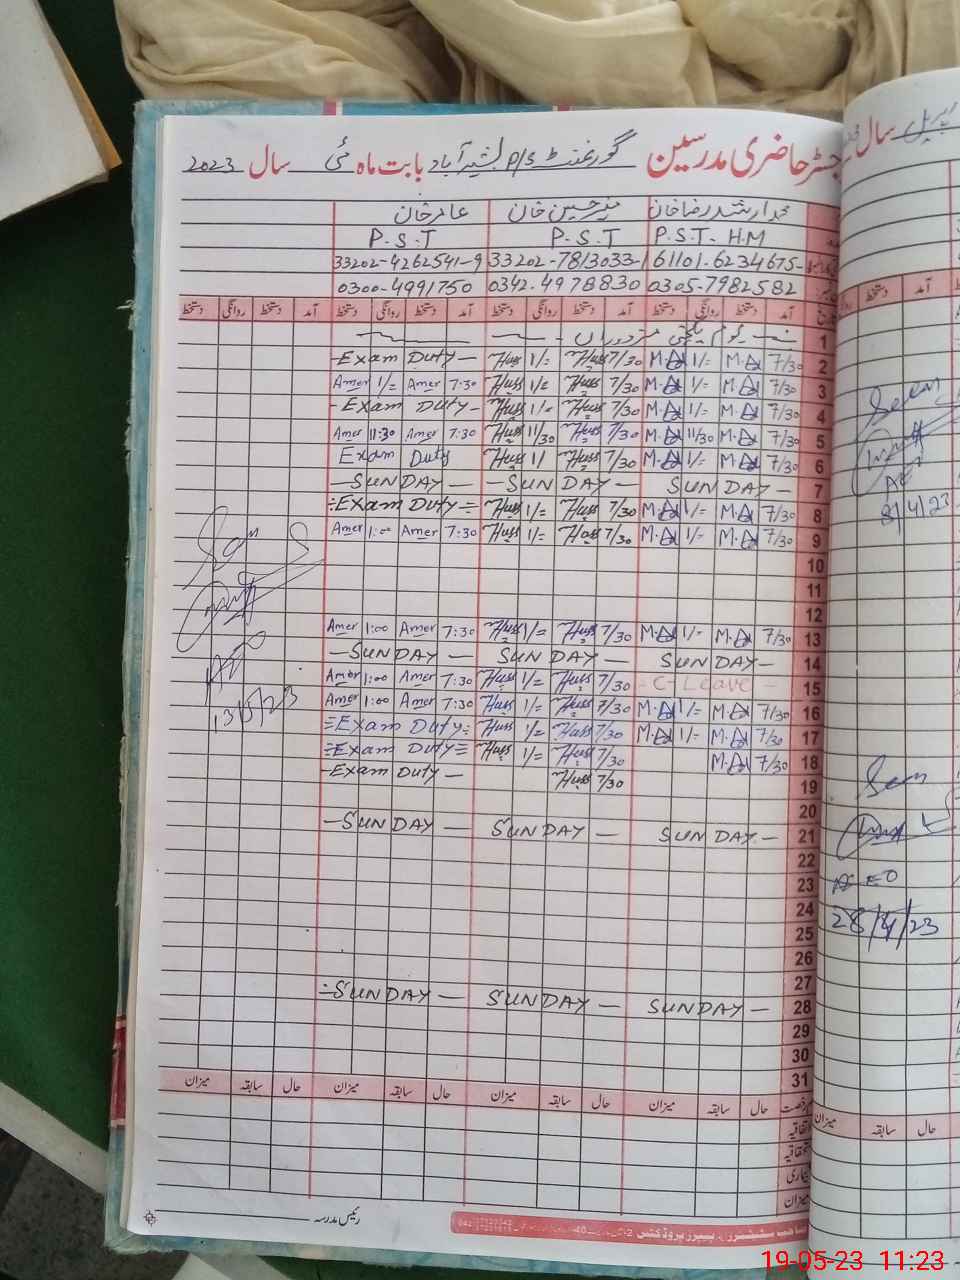 رجسٹر حاضری مدرسین گورنمنٹ P/S بشیر آباد بابت ماہ مئی سال 2023
محمد ارشد رضا خان حسین خان عامر خان
P.S.T - H.M P.S.T P.S.T
61101-6234675- 33202-7813033-1 33202-4262541-9
0305-7982582 0342-4978830 0300-4991750
آمد دستخط روانگی دستخط آمد دستخط روانگی دستخط آمد دستخط روانگی دستخط آمد دستخط روانگی دستخط
1 یوم
2 7/30 M.A 1/= M.A 7/30 Huss 1/= Huss -Exam Duty-
3 7/30 M.A 1/= M.A 7/30 Huss 1/= Huss 7:30 Amer 1/= Amer
4 7/30 M.A 1/= M.A 7/30 Huss 1/= Huss -Exam Duty-
5 7/30 M.A 11/30 M.A 7/30 Huss 11/30 Huss 7:30 Amer 11:30 Amer
6 7/30 M.A 1/= M.A 7/30 Huss 1/ Huss Exam Duty
7 SUNDAY - - SUNDAY - - SUNDAY -
8 7/30 M.A 1/= M.A 7/30 Huss 1/= Huss Exam Duty
9 7/30 M.A 1/= M.A 7/30 Huss 1/= Huss 7:30 Amer 1:00 Amer
10
11
12
13 7/30 M.A 1/= M.A 7/30 Huss 1/= Huss 7:30 Amer 1:00 Amer
14 SUNDAY - SUNDAY - - SUNDAY -
15 - C-Leave - 7/30 Huss 1/= Huss 7:30 Amer 1:00 Amer
16 7/30 M.A 1/= M.A 7/30 Huss 1/= Huss 7:30 Amer 1:00 Amer
17 7/30 M.A 1/= M.A 7/30 Huss 1/= Huss Exam Duty
18 7/30 M.A 7/30 Huss 1/= Huss Exam Duty
19 7/30 Huss -Exam Duty-
20
21 SUNDAY - SUNDAY - - SUNDAY -
22
23
24
25
26
27
28 SUNDAY - SUNDAY - SUNDAY -
29
30
31
13/5/23
رخصت حال سابقہ میزان حال سابقہ میزان حال سابقہ میزان حال سابقہ میزان
اتفاقیہ
استحقاقیہ
بیماری
میزان
رئیس مدرسہ
سال اپریل
آمد دستخط
8/4/23
AEO
28/4/23
حال سابقہ میزان
19-05-23 11:23